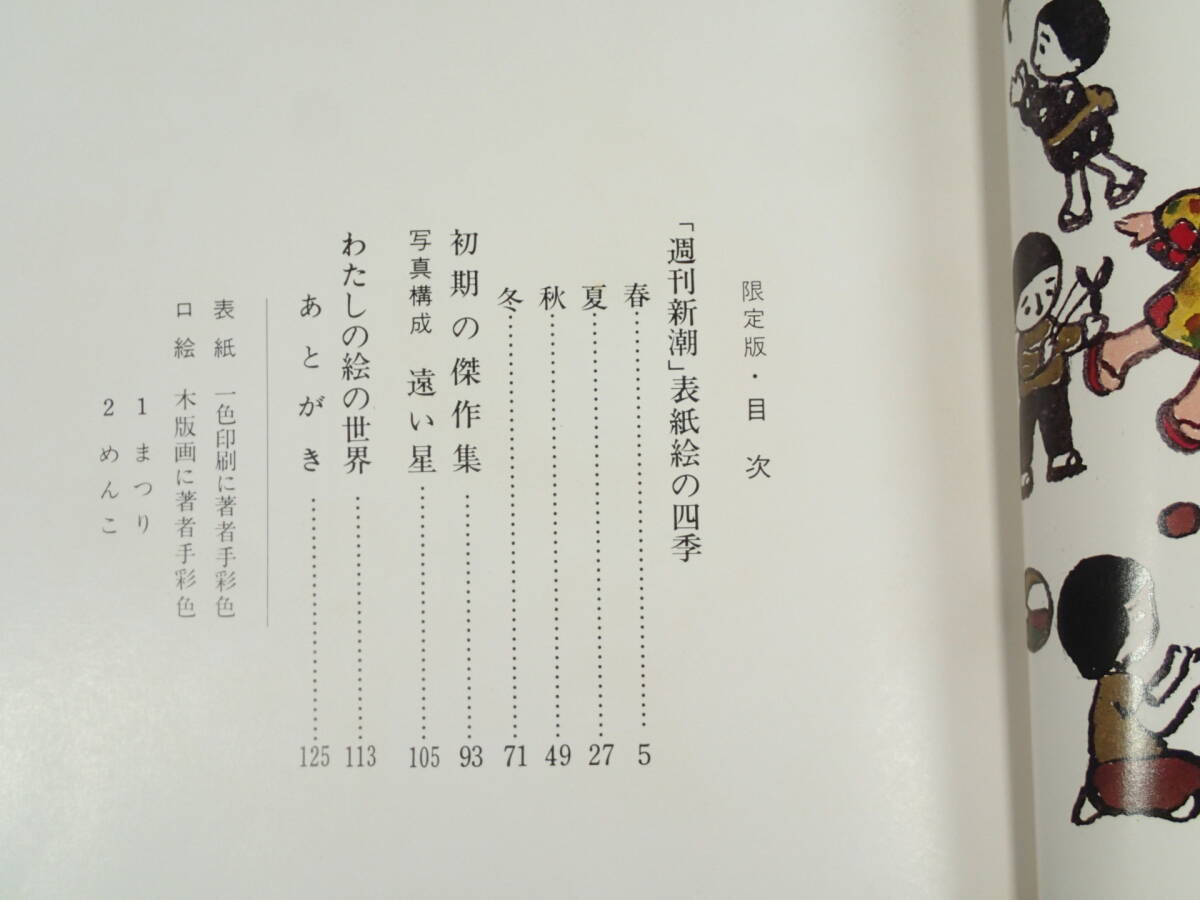 限定版・目次
「週刊新潮」表紙絵の四季
春……………………5
夏……………………27
秋……………………49
冬……………………71
初期の傑作集……………………93
写真構成 遠い星……………………105
わたしの絵の世界……………………113
あとがき……………………125
表紙 一色印刷に著者手彩色
口絵 木版画に著者手彩色
1 まつり
2 めんこ